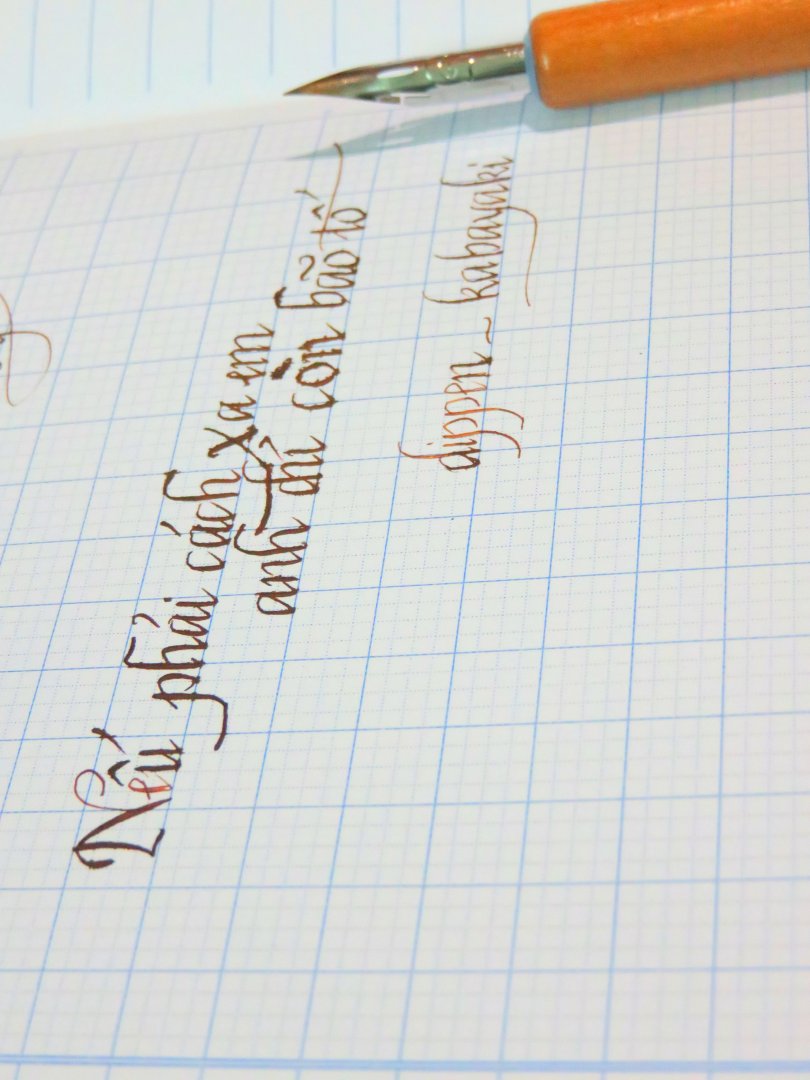 Nếu phải cách xa em
anh chỉ còn bão tố
dippen ~ kabayaki